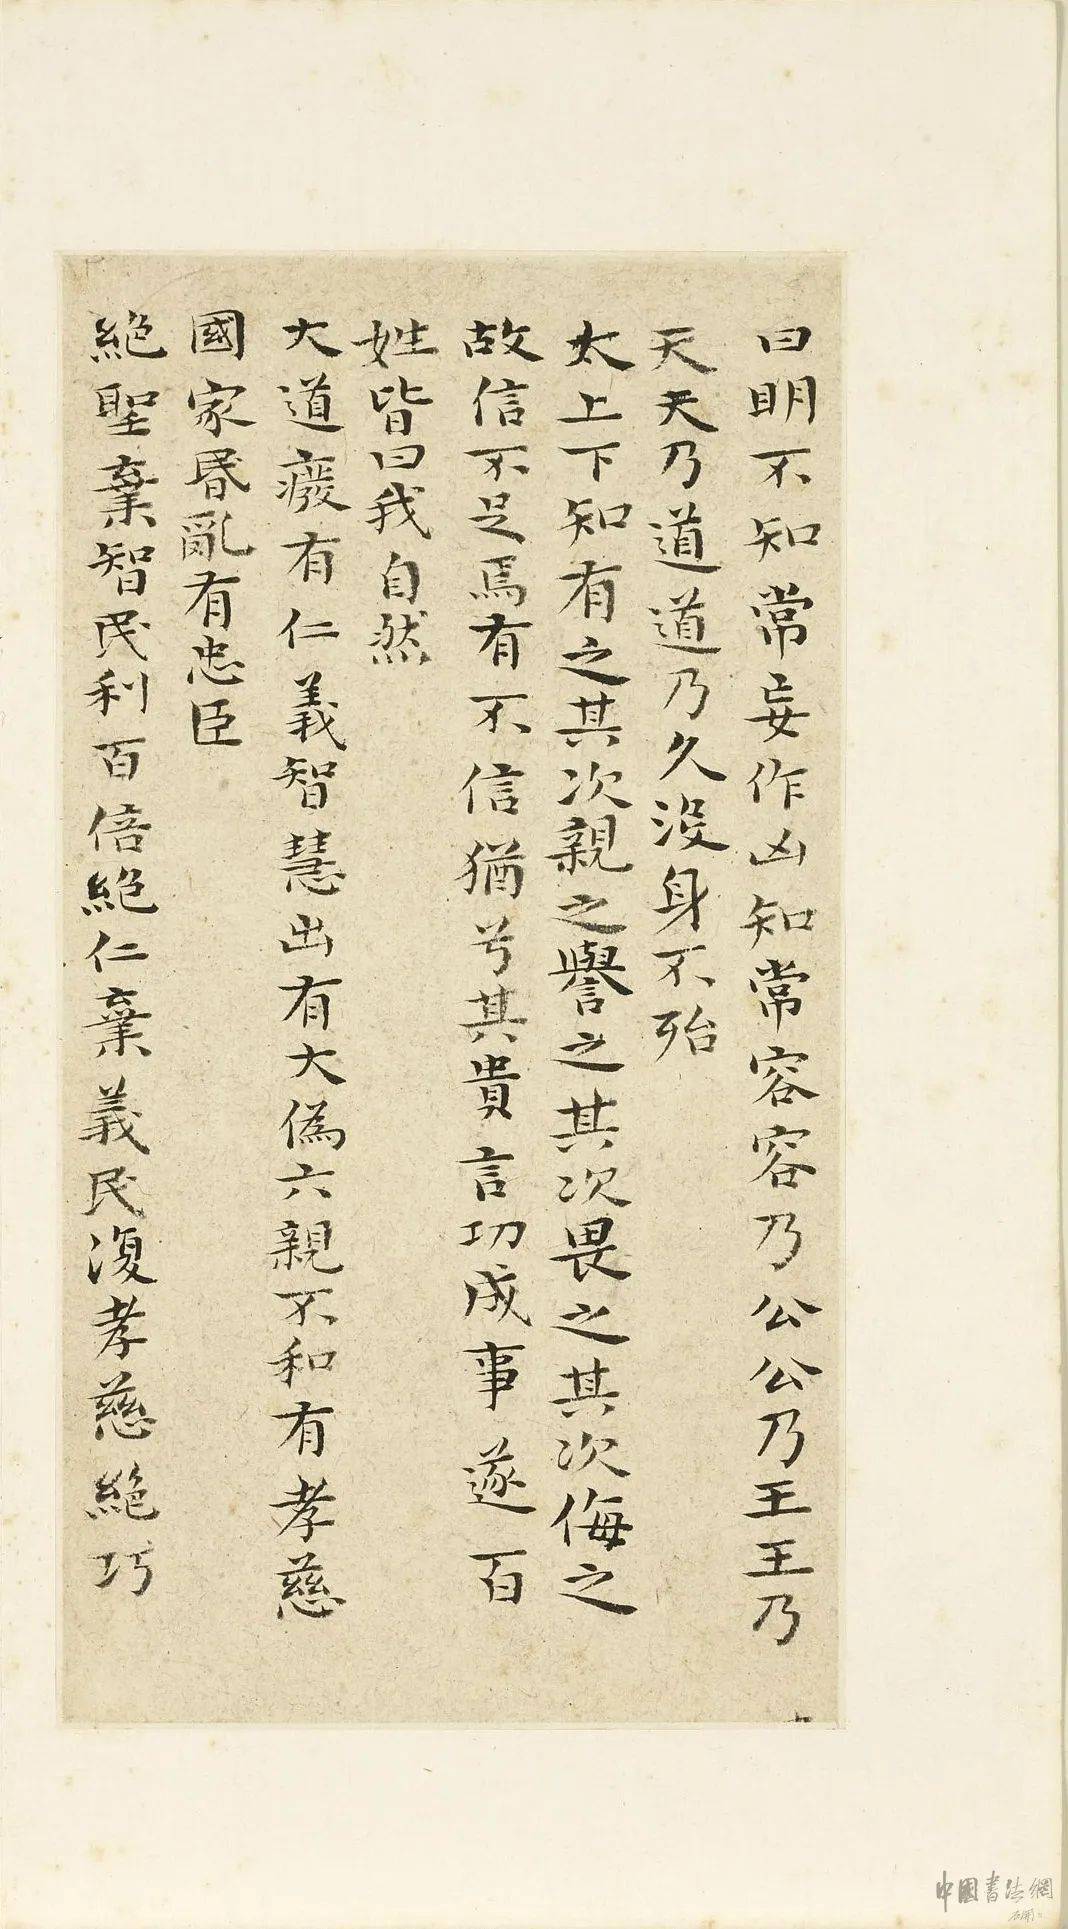 曰明不知常妄作凶知常容容乃公公乃王王乃
天天乃道道乃久没身不殆
太上下知有之其次親之譽之其次畏之其次侮之
故信不足焉有不信猶兮其貴言功成事遂百
姓皆曰我自然
大道廢有仁義智慧出有大偽六親不和有孝慈
國家昏亂有忠臣
絕聖棄智民利百倍絕仁棄義民復孝慈絕巧
中國書法網